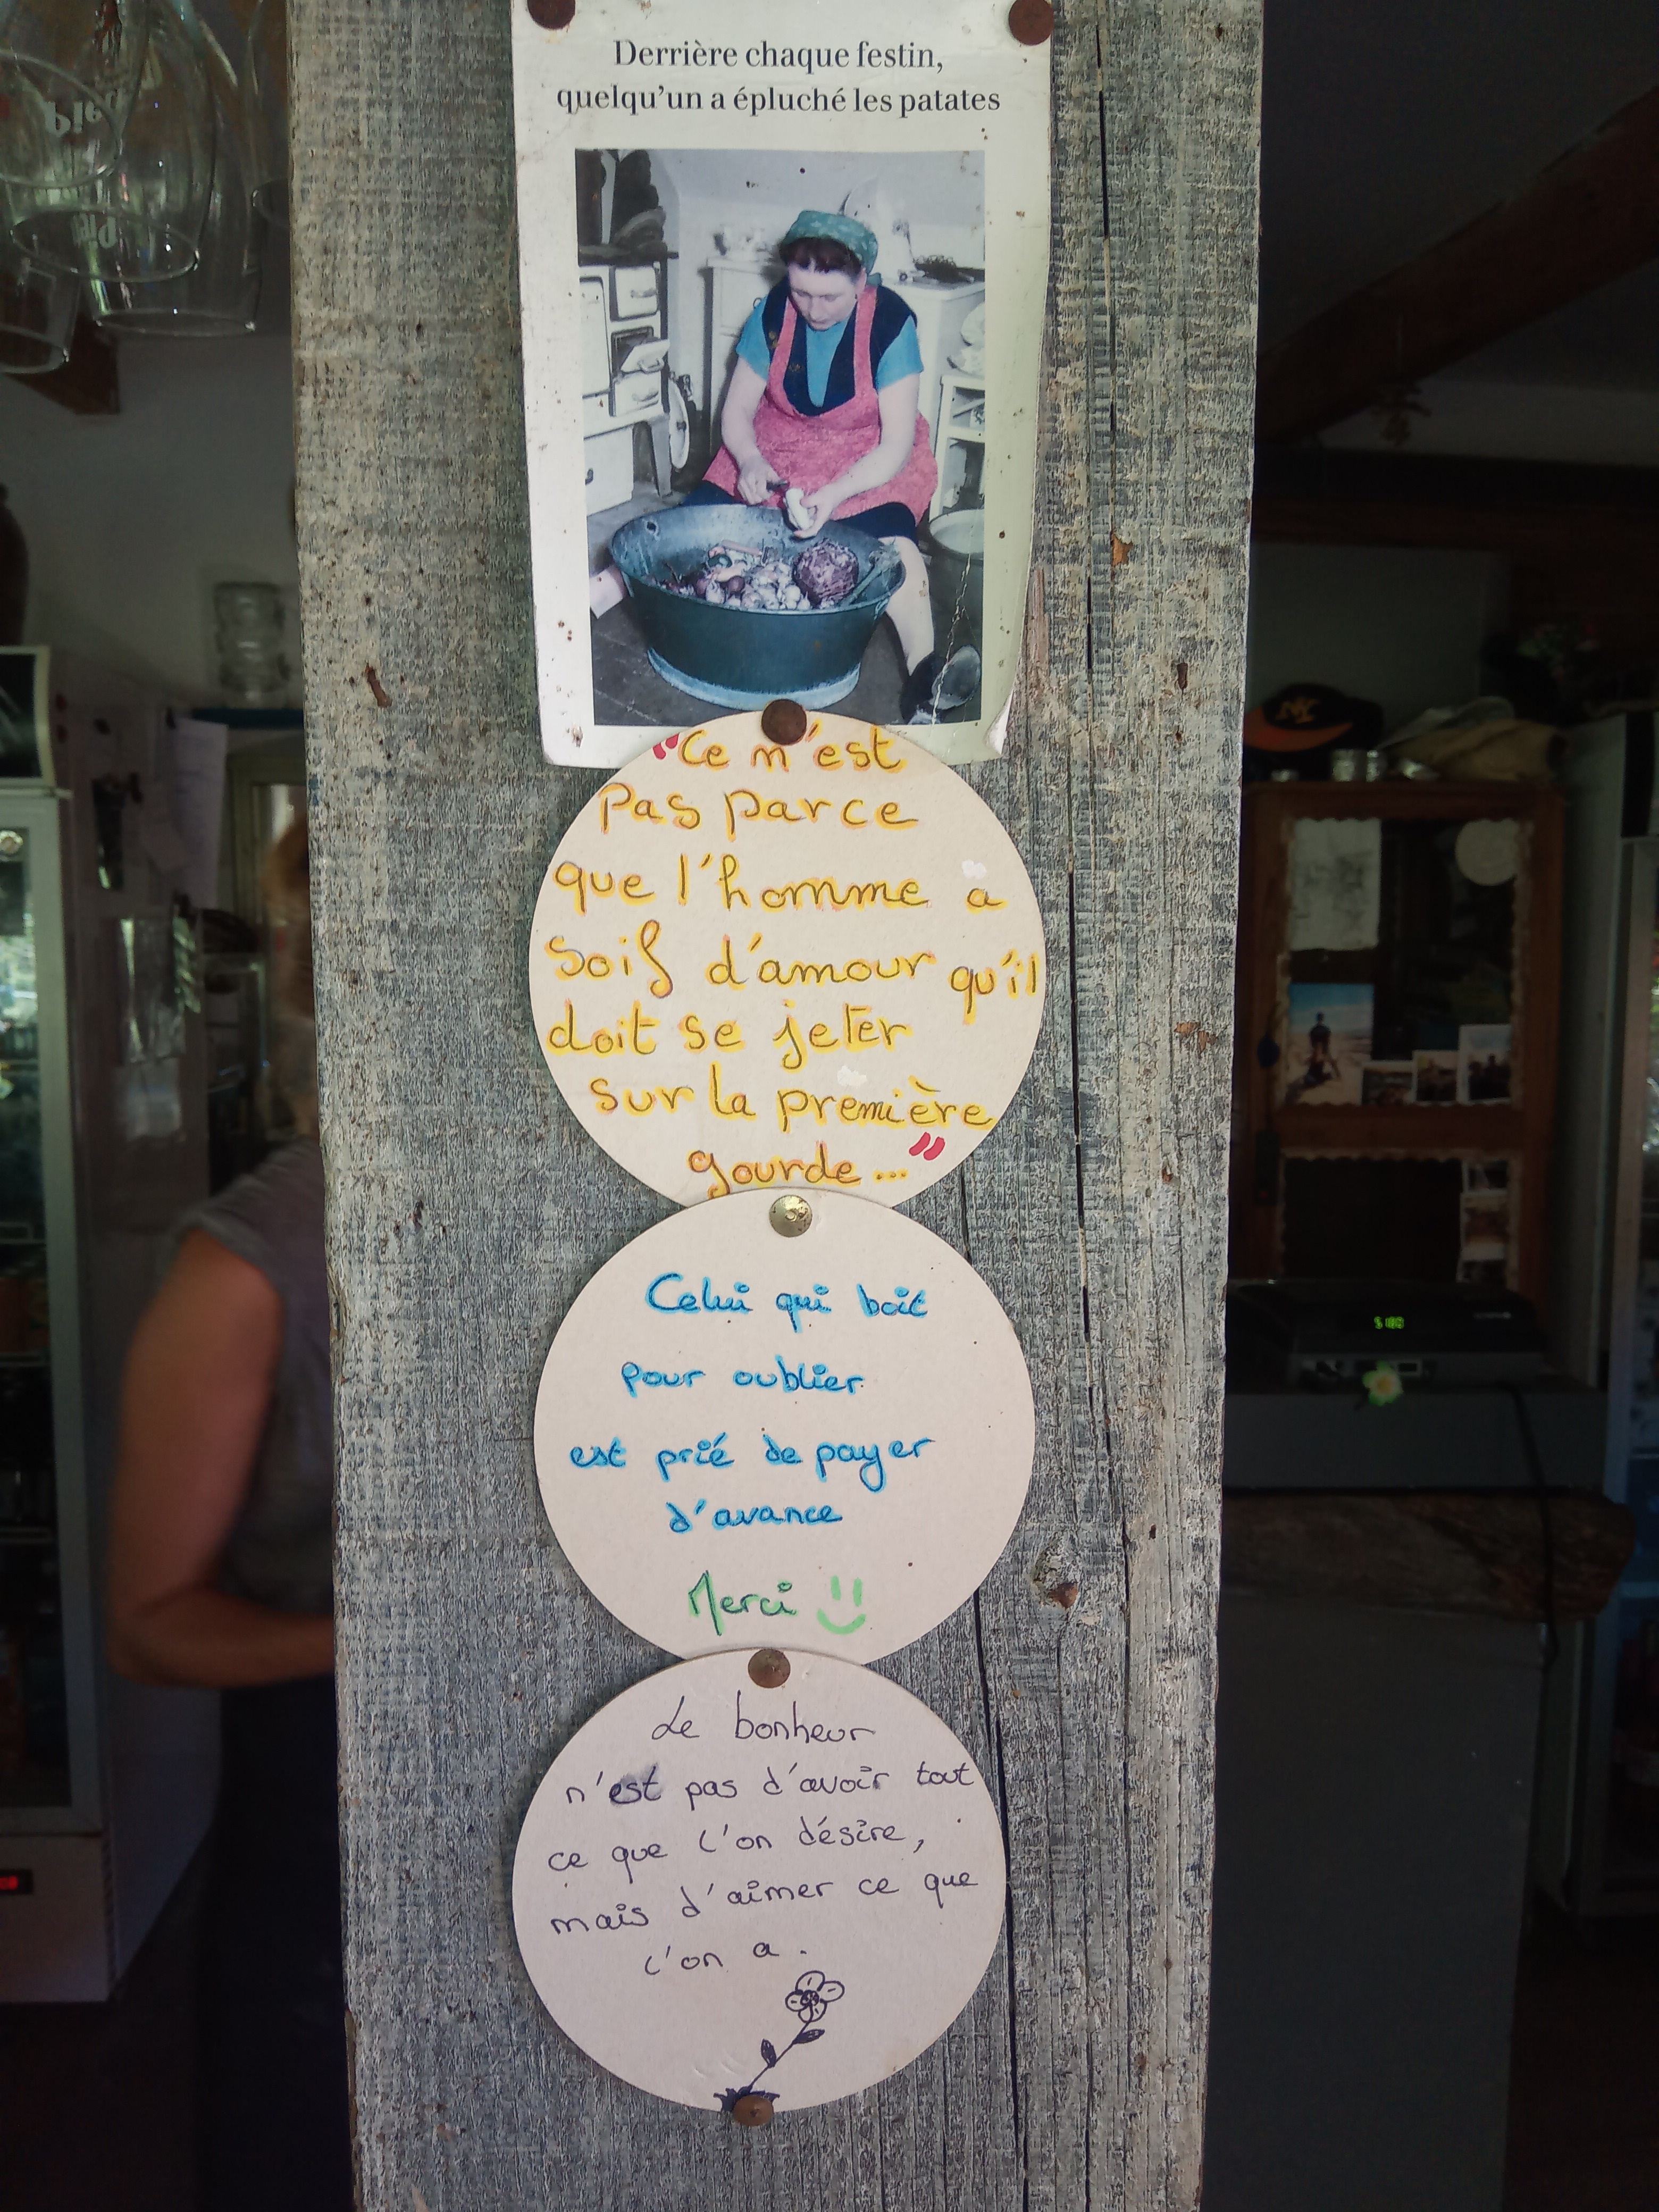 Derrière chaque festin,
quelqu'un a épluché les patates
"Ce n'est
pas parce
que l'homme a
soif d'amour qu'il
doit se jeter
sur la première
gourde..."
Celui qui boit
pour oublier
est prié de payer
d'avance
Merci
Le bonheur
n'est pas d'avoir tout
ce que l'on désire,
mais d'aimer ce que
l'on a.